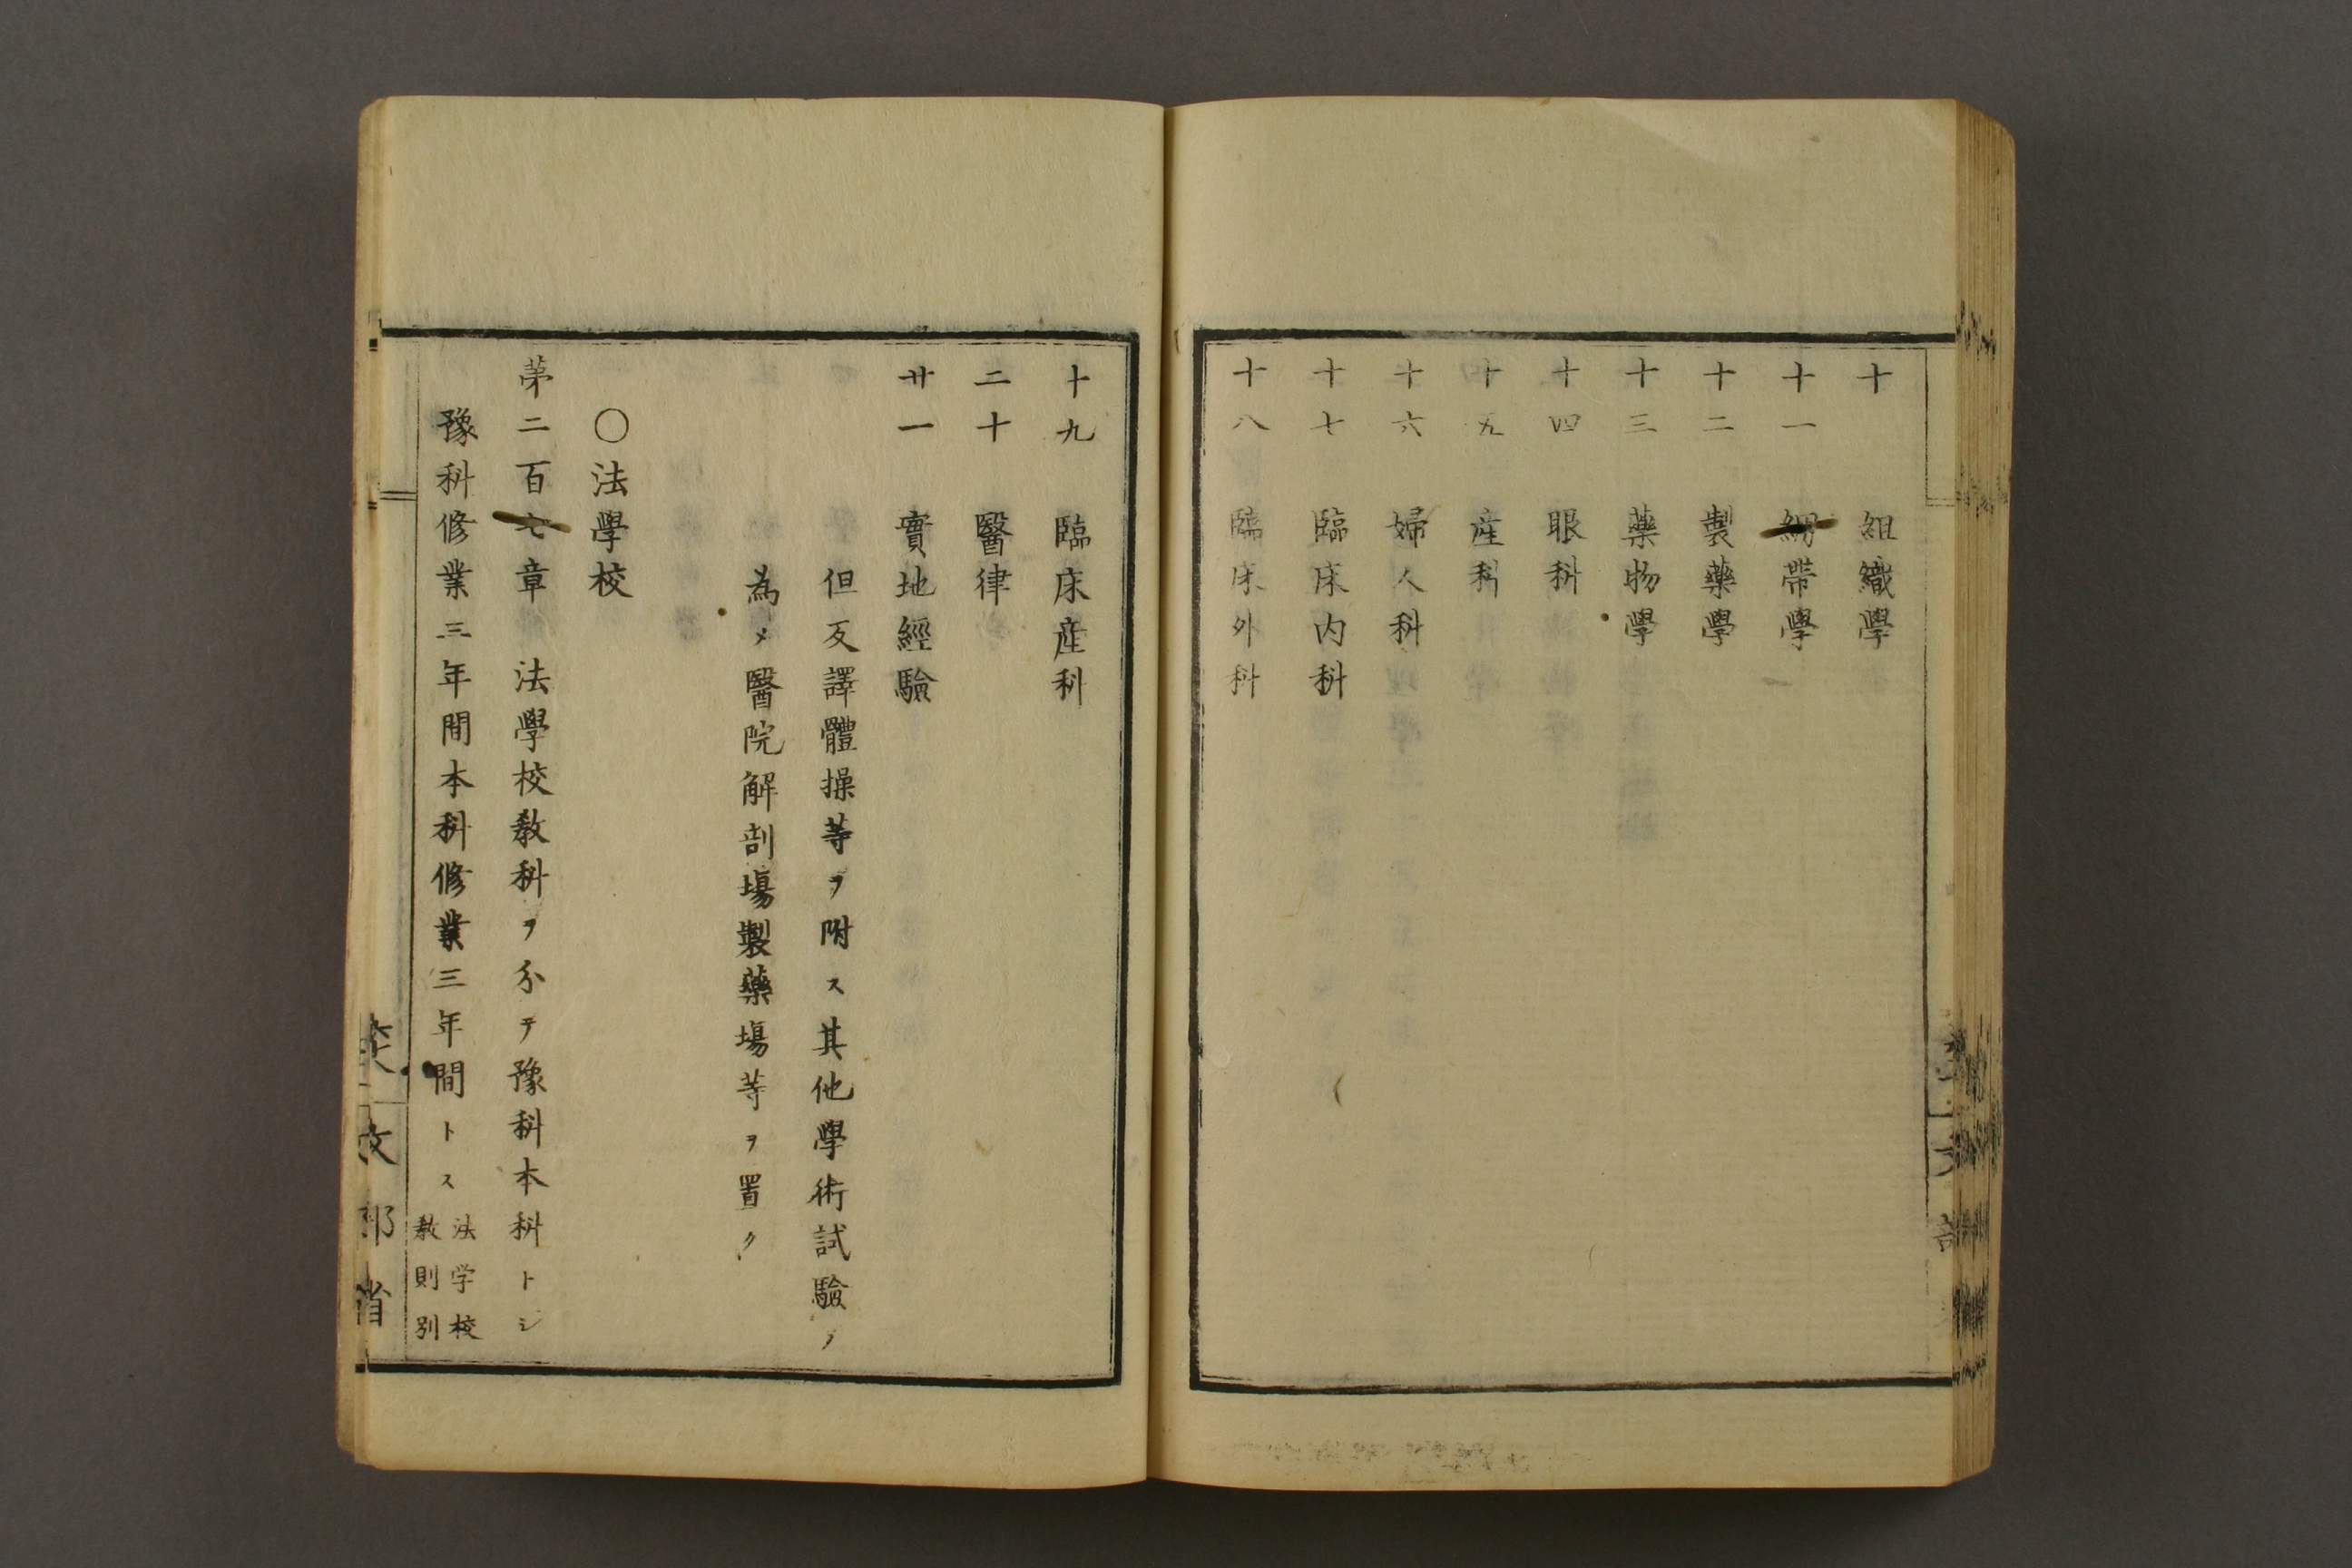 十 組織學
十一 繃帶學
十二 製藥學
十三 藥物學
十四 眼科
十五 産科
十六 婦人科
十七 臨床内科
十八 臨床外科
十九 臨床産科
二十 醫律
廿一 實地經驗
但反譯體操等ヲ附ス其他學術試驗ノ
為メ醫院解剖塲製藥塲等ヲ置ク
〇法學校
第二百七章 法學校敎科ヲ分テ豫科本科トシ
豫科修業三年間本科修業三年間トス法学校
敎則別
文部省